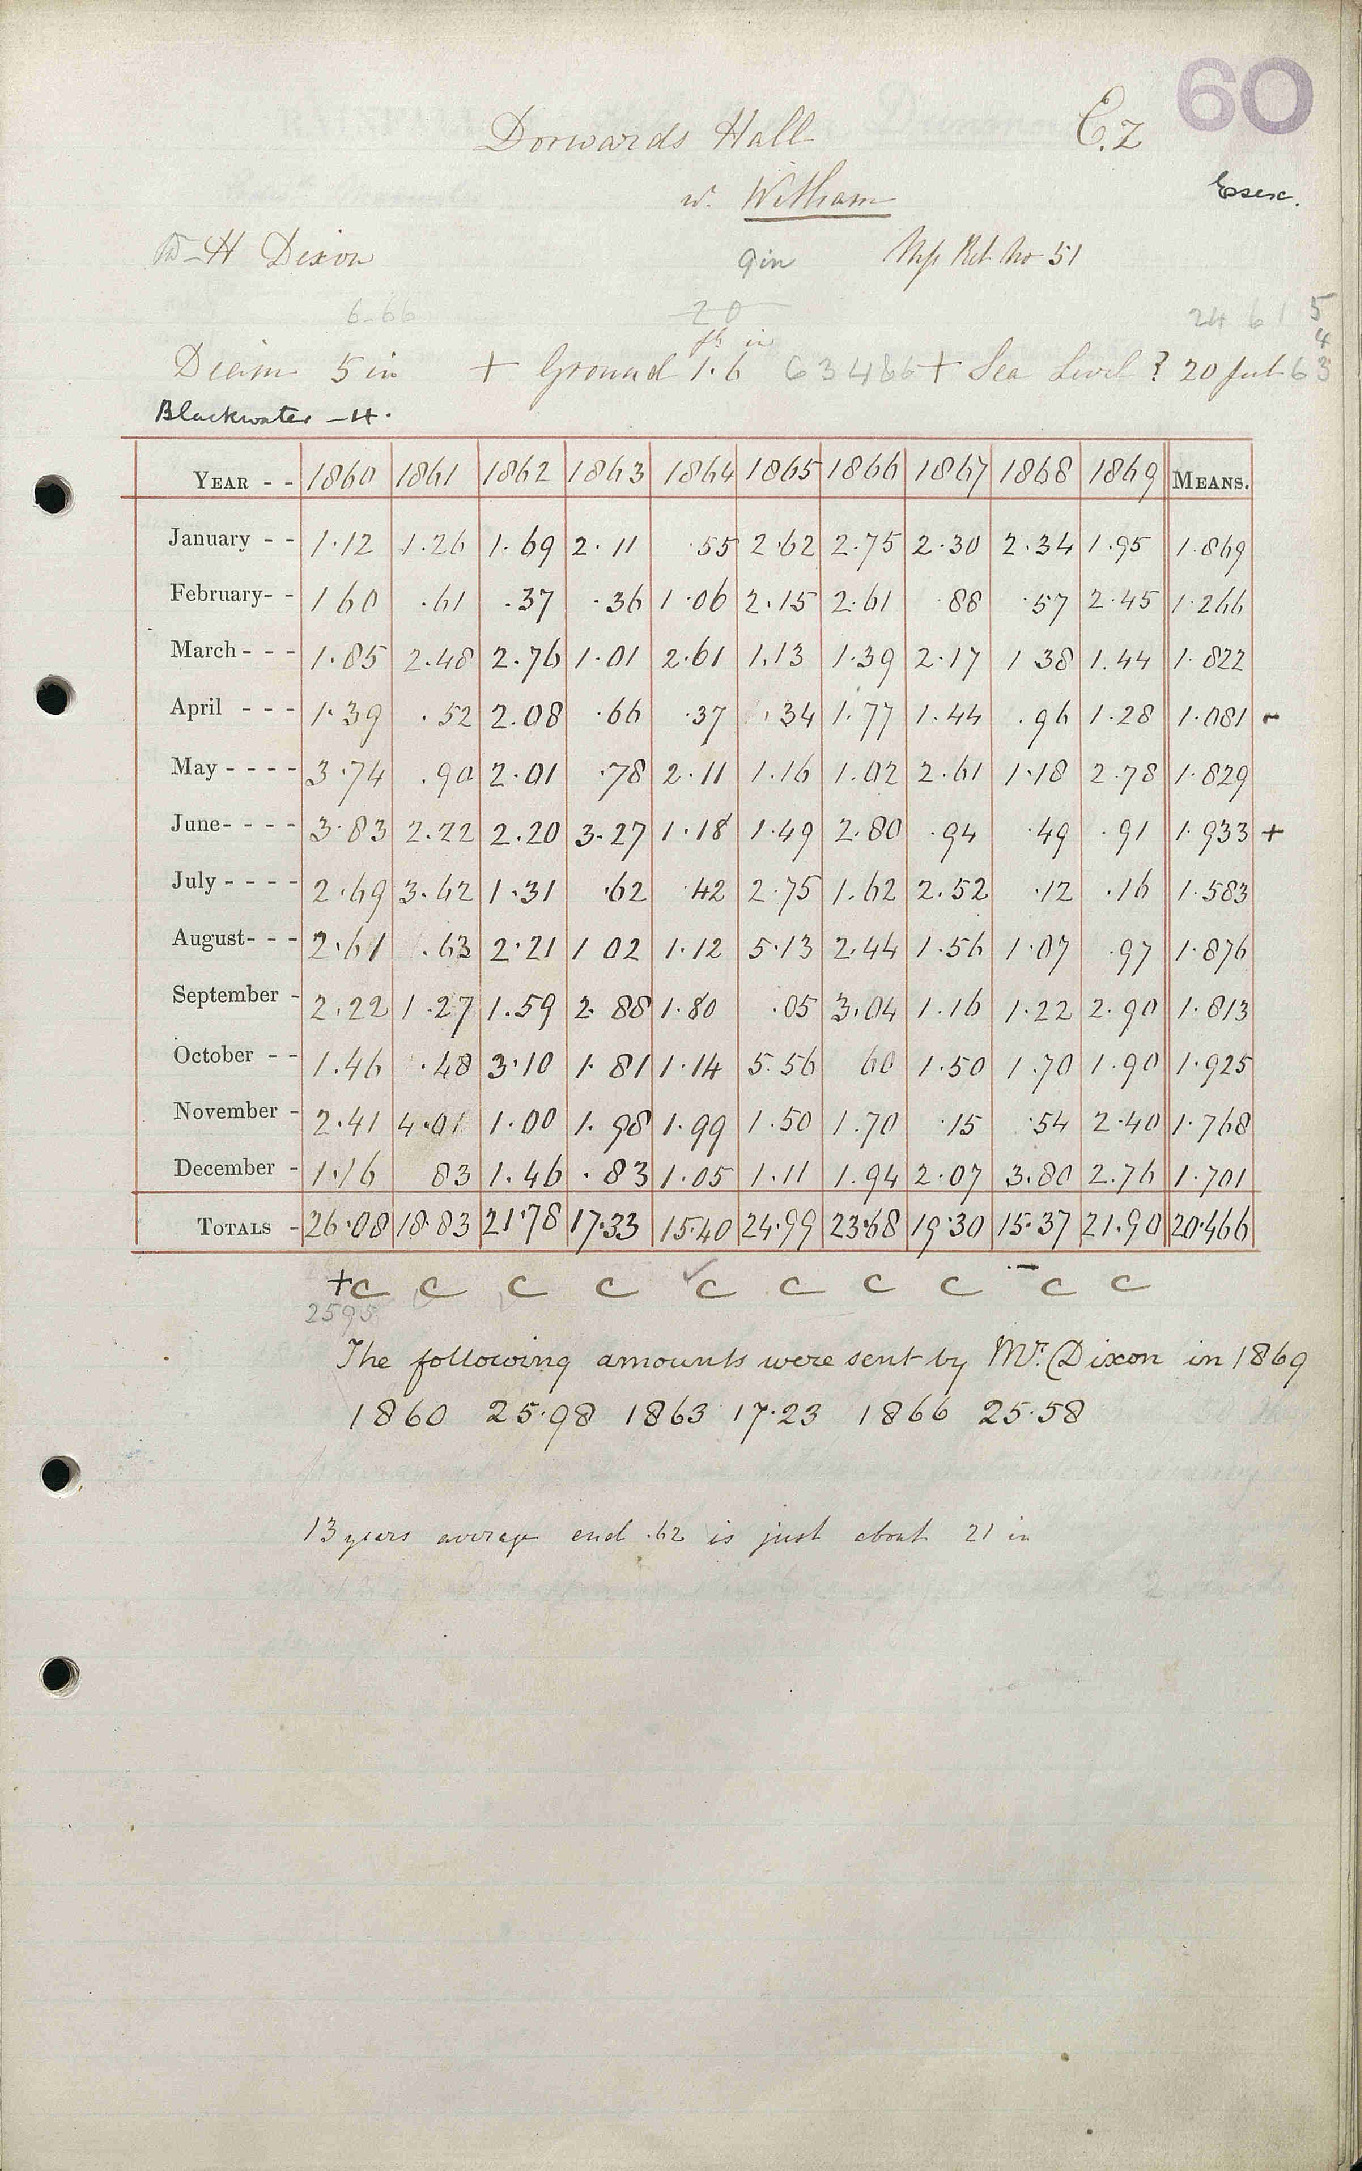 60
Dorwards Hall E.z
w. Witham Essex.
H Dixon 9in Ret No 51
6-66 20 24 61 5
ft in 4
Diam 5 in + Ground 1.6 63486 + Sea Level ? 20 feet 63
Blackwater - H.
YEAR - - 1860 1861 1862 1863 1864 1865 1866 1867 1868 1869 MEANS.
January - - 1.12 1.26 1.69 2.11 .55 2.62 2.75 2.30 2.34 1.95 1.869
February- - 1 60 .61 .37 .36 1.06 2.15 2.61 .88 .57 2.45 1.266
March - - - 1.85 2.48 2.76 1.01 2.61 1.13 1.39 2.17 1 38 1.44 1.822
April - - - 1.39 .52 2.08 .66 .37 .34 1.77 1.44 .96 1.28 1.081 -
May - - - - 3.74 .90 2.01 .78 2.11 1.16 1.02 2.61 1.18 2.78 1.829
June- - - - 3.83 2.22 2.20 3.27 1.18 1.49 2.80 .94 .49 .91 1.933 +
July - - - - 2.69 3.62 1.31 .62 .42 2.75 1.62 2.52 .12 .16 1.583
August- - - 2.61 .63 2.21 1 02 1.12 5.13 2.44 1.56 1.07 .97 1.876
September - 2.22 1.27 1.59 2.88 1.80 .05 3.04 1.16 1.22 2.90 1.813
October - - 1.46 .48 3.10 1.81 1.14 5.56 60 1.50 1.70 1.90 1.925
November - 2.41 4.01 1.00 1.98 1.99 1.50 1.70 .15 .54 2.40 1.768
December - 1.16 83 1.46 .83 1.05 1.11 1.94 2.07 3.80 2.76 1.701
TOTALS - 26.08 18.83 21.78 17.33 15.40 24.99 23.68 19.30 15.37 21.90 20.466
+ C C C C C C C C - C C
2595
The following amounts were sent by Mr. Dixon in 1869
1860 25.98 1863 17.23 1866 25.58
13 years average end .62 is just about 21 in